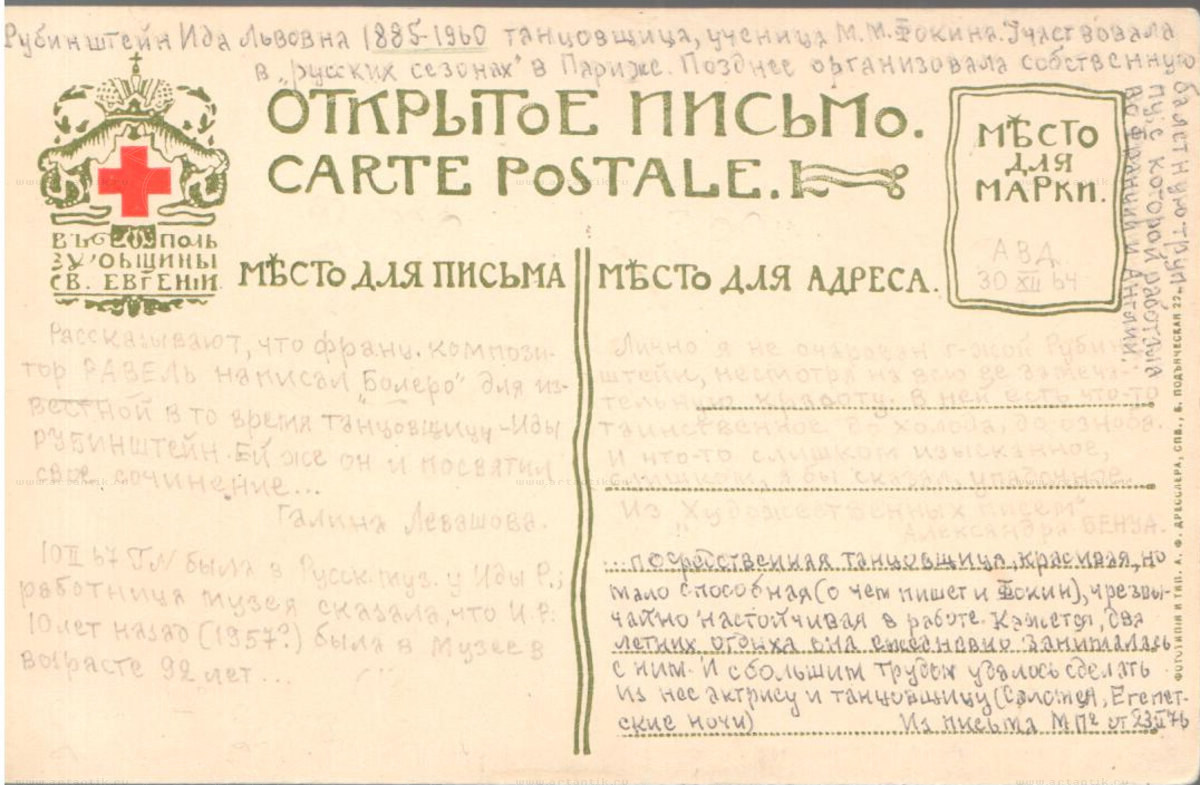 Рубинштейн Ида Львовна 1885-1960 танцовщица, ученица М.М. Фокина. Участвовала
в „русских сезонах" в Париже. Позднее организовала собственную
балетную труп-
пу, с которой работала
во Франции и Англии.
ОТКРЫТОЕ ПИСЬМО.
CARTE POSTALE.
МѢСТО
ДЛЯ
МАРКИ.
АВД.
30 XII 64
ВЪ ПОЛЬ
ЗУ ОБЩИНЫ
СВ. ЕВГЕНІИ
МѢСТО ДЛЯ ПИСЬМА
МѢСТО ДЛЯ АДРЕСА.
Рассказывают, что франц. компози-
тор РАВЕЛЬ написал „Болеро" для из-
вестной в то время танцовщицы - Иды
РУБИНШТЕЙН. Ей же он и посвятил
свое сочинение...
Галина Левашова.
10 II 67 ГЛ была в Русск. муз. у Иды Р.;
работница музея сказала, что И.Р.
10 лет назад (1957?) была в Музее в
возрасте 92 лет...
Лично я не очарован г-жой Рубин-
штейн, несмотря на всю ее замеча-
тельную красоту. В ней есть что-то
таинственное до холода, до озноба.
и что-то слишком изысканное,
слишком, я бы сказал, упадочное.
Из „Художественных писем"
Александра БЕНУА.
...посредственная танцовщица, красивая, но
мало способная (о чем пишет и Фокин), чрезвы-
чайно настойчивая в работе. Кажется, два
летних отдыха она ежедневно занималась
с ним. И с большим трудом удалось сделать
из нее актрису и танцовщицу (Саломея, Египет-
ские ночи) Из письма от 23 II 76
ФОТОТИПІЯ И ТИП. А. Ф. ДРЕССЛЕРА, СПБ., Б. ПОДЬЯЧЕСКАЯ 22.